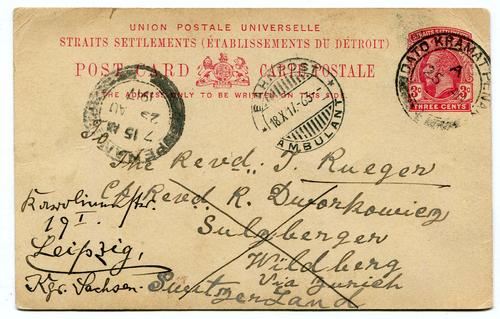 UNION POSTALE UNIVERSELLE
STRAITS SETTLEMENTS (ÉTABLISSEMENTS DU DÉTROIT)
POST CARD CARTE POSTALE
THE ADDRESS ONLY TO BE WRITTEN ON THIS SIDE
STRAITS SETTLEMENTS
3c 3c
THREE CENTS
DATO KRAMAT PENANG
A
25
7 15 AM
25
AU
18.X.17-05
AMBULANT
The Revd: J. Rueger
C/o Revd. R. Dworkowicz
Sulzberger
Wildberg
Via Zurich
Switzerland
19 I.
Leipzig,
Kgr. Sachsen.